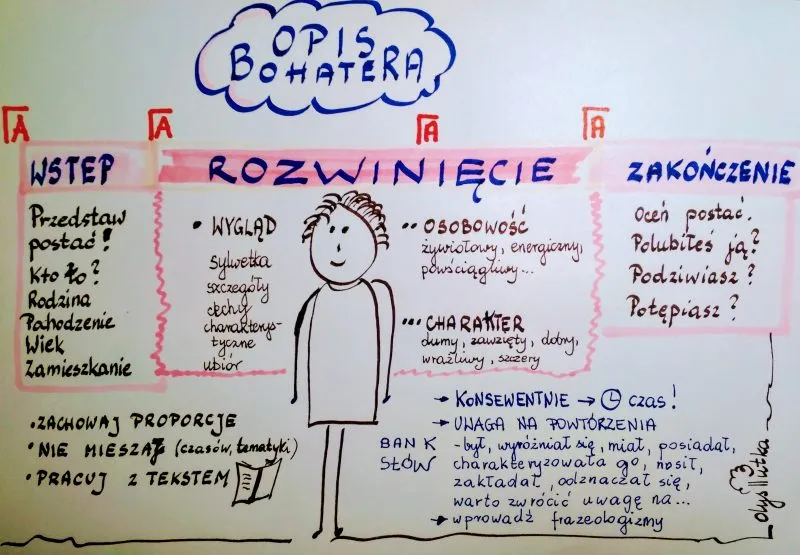 OPIS
BOHATERA
A
A
A
A
WSTĘP
Przedstaw
postać!
Kto to?
Rodzina
Pochodzenie
Wiek
Zamieszkanie
ROZWINIĘCIE
• WYGLĄD
sylwetka
szczegóły
cechy
charakterys-
tyczne
ubiór
•• OSOBOWOŚĆ
żywiołowy, energiczny,
powściągliwy...
••• CHARAKTER
dumy, zawzięty, dobry,
wrażliwy, szczery
ZAKOŃCZENIE
Oceń postać.
Polubiłeś ją?
Podziwiasz?
Potępiasz?
• ZACHOWAJ PROPORCJE
• NIE MIESZAJ (czasów, tematyki)
• PRACUJ Z TEKSTEM
→ KONSEWENTNIE → czas!
→ UWAGA NA POWTÓRZENIA
BANK SŁÓW
- był, wyróżniał się, miał, posiadał,
charakteryzowała go, nosił,
zakładał, odznaczał się,
warto zwrócić uwagę na...
→ wprowadź frazeologizmy